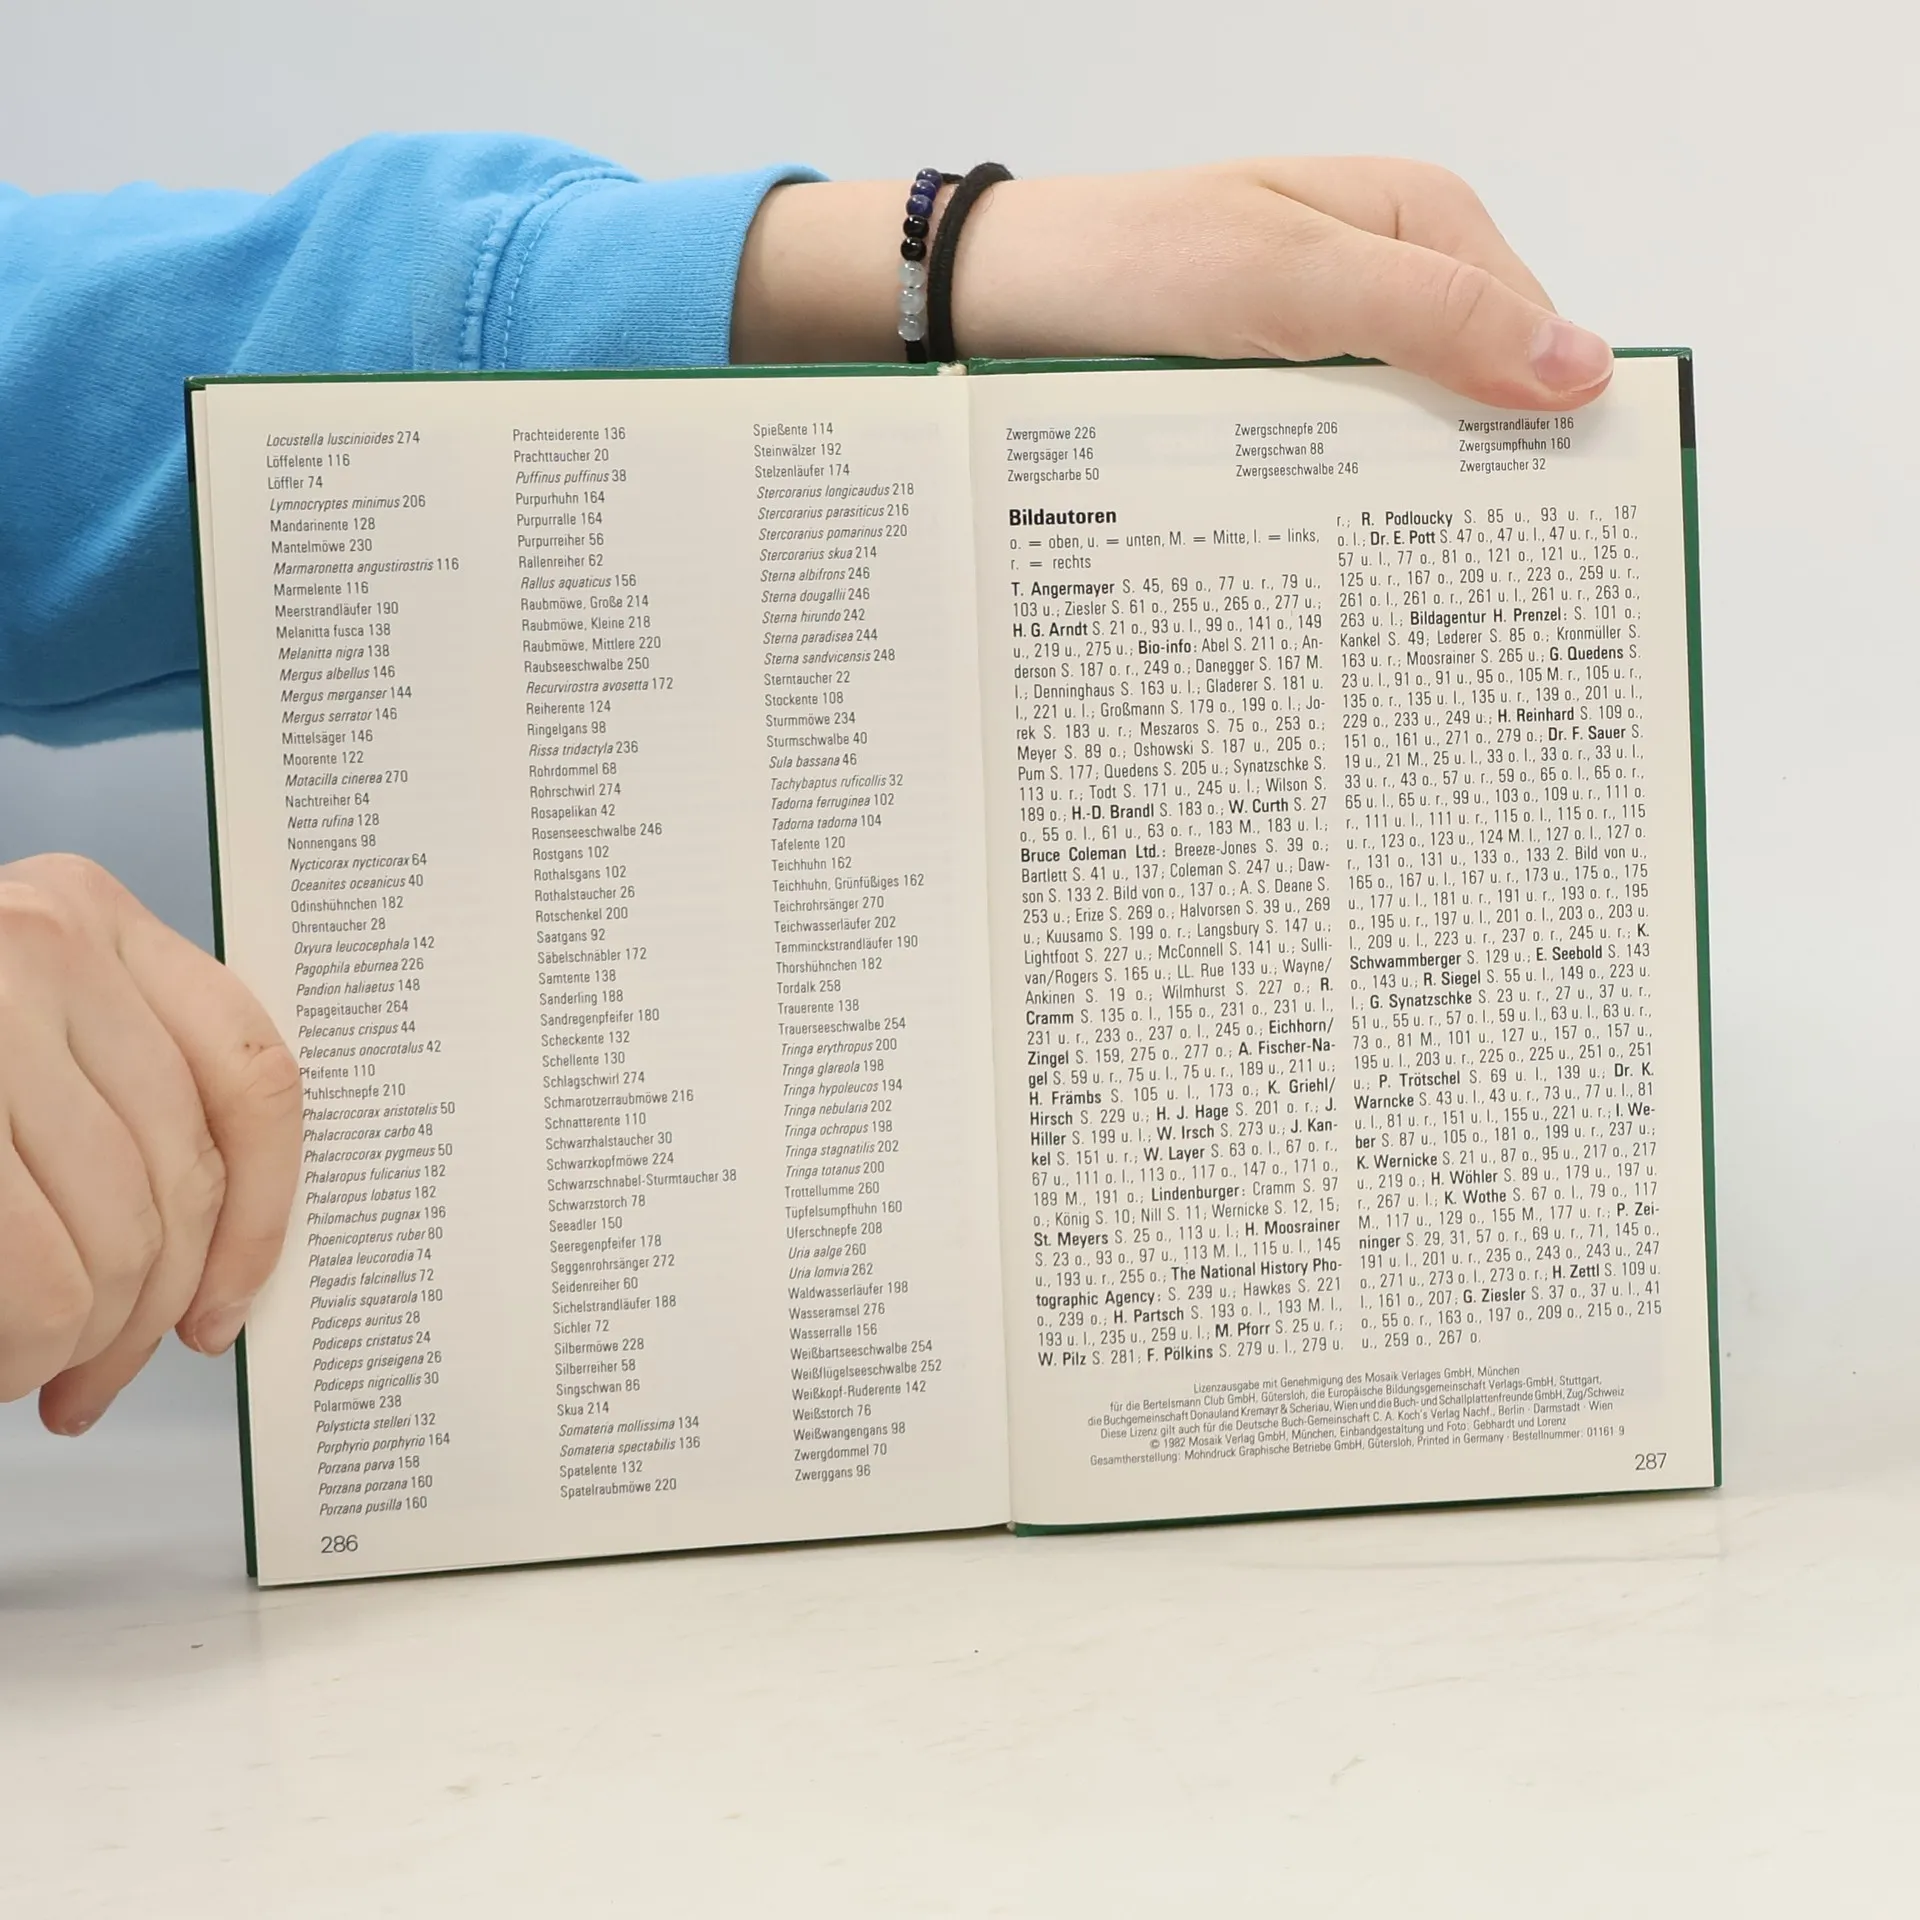 Locustella luscinioides 274
Löffelente 116
Löffler 74
Lymnocryptes minimus 206
Mandarinente 128
Mantelmöwe 230
Marmaronetta angustirostris 116
Marmelente 116
Meerstrandläufer 190
Melanitta fusca 138
Melanitta nigra 138
Mergus albellus 146
Mergus merganser 144
Mergus serrator 146
Mittelsäger 146
Moorente 122
Motacilla cinerea 270
Nachtreiher 64
Netta rufina 128
Nonnengans 98
Nycticorax nycticorax 64
Oceanites oceanicus 40
Odinshühnchen 182
Ohrentaucher 28
Oxyura leucocephala 142
Pagophila eburnea 226
Pandion haliaetus 148
Papageitaucher 264
Pelecanus crispus 44
Pelecanus onocrotalus 42
Pfeifente 110
Pfuhlschnepfe 210
Phalacrocorax aristotelis 50
Phalacrocorax carbo 48
Phalacrocorax pygmeus 50
Phalaropus fulicarius 182
Phalaropus lobatus 182
Philomachus pugnax 196
Phoenicopterus ruber 80
Platalea leucorodia 74
Plegadis falcinellus 72
Pluvialis squatarola 180
Podiceps auritus 28
Podiceps cristatus 24
Podiceps griseigena 26
Podiceps nigricollis 30
Polarmöwe 238
Polysticta stelleri 132
Porphyrio porphyrio 164
Porzana parva 158
Porzana porzana 160
Porzana pusilla 160
Prachteiderente 136
Prachttaucher 20
Puffinus puffinus 38
Purpurhuhn 164
Purpurralle 164
Purpurreiher 56
Rallenreiher 62
Rallus aquaticus 156
Raubmöwe, Große 214
Raubmöwe, Kleine 218
Raubmöwe, Mittlere 220
Raubseeschwalbe 250
Recurvirostra avosetta 172
Reiherente 124
Ringelgans 98
Rissa tridactyla 236
Rohrdommel 68
Rohrschwirl 274
Rosapelikan 42
Rosenseeschwalbe 246
Rostgans 102
Rothalsgans 102
Rothalstaucher 26
Rotschenkel 200
Saatgans 92
Säbelschnäbler 172
Samtente 138
Sanderling 188
Sandregenpfeifer 180
Scheckente 132
Schellente 130
Schlagschwirl 274
Schmarotzerraubmöwe 216
Schnatterente 110
Schwarzhalstaucher 30
Schwarzkopfmöwe 224
Schwarzschnabel-Sturmtaucher 38
Schwarzstorch 78
Seeadler 150
Seeregenpfeifer 178
Seggenrohrsänger 272
Seidenreiher 60
Sichelstrandläufer 188
Sichler 72
Silbermöwe 228
Silberreiher 58
Singschwan 86
Skua 214
Somateria mollissima 134
Somateria spectabilis 136
Spatelente 132
Spatelraubmöwe 220
Spießente 114
Steinwälzer 192
Stelzenläufer 174
Stercorarius longicaudus 218
Stercorarius parasiticus 216
Stercorarius pomarinus 220
Stercorarius skua 214
Sterna albifrons 246
Sterna dougallii 246
Sterna hirundo 242
Sterna paradisea 244
Sterna sandvicensis 248
Sterntaucher 22
Stockente 108
Sturmmöwe 234
Sturmschwalbe 40
Sula bassana 46
Tachybaptus ruficollis 32
Tadorna ferruginea 102
Tadorna tadorna 104
Tafelente 120
Teichhuhn 162
Teichhuhn, Grünfüßiges 162
Teichrohrsänger 270
Teichwasserläufer 202
Temminckstrandläufer 190
Thorshühnchen 182
Tordalk 258
Trauerente 138
Trauerseeschwalbe 254
Tringa erythropus 200
Tringa glareola 198
Tringa hypoleucos 194
Tringa nebularia 202
Tringa ochropus 198
Tringa stagnatilis 202
Tringa totanus 200
Trottellumme 260
Tüpfelsumpfhuhn 160
Uferschnepfe 208
Uria aalge 260
Uria lomvia 262
Waldwasserläufer 198
Wasseramsel 276
Wasserralle 156
Weißbartseeschwalbe 254
Weißflügelseeschwalbe 252
Weißkopf-Ruderente 142
Weißstorch 76
Weißwangengans 98
Zwergdommel 70
Zwerggans 96
286
Zwergmöwe 226
Zwergsäger 146
Zwergscharbe 50
Zwergschnepfe 206
Zwergschwan 88
Zwergseeschwalbe 246
Zwergstrandläufer 186
Zwergsumpfhuhn 160
Zwergtaucher 32
Bildautoren
o. = oben, u. = unten, M. = Mitte, l. = links,
r. = rechts
T. Angermayer S. 45, 69 o., 77 u. r., 79 u.,
103 u.; Ziesler S. 61 o., 255 u., 265 o., 277 u.;
H. G. Arndt S. 21 o., 93 u. l., 99 o., 141 o., 149
u., 219 u., 275 u.; Bio-info: Abel S. 211 o.; An-
derson S. 187 o. r., 249 o.; Danegger S. 167 M.
l.; Denninghaus S. 163 u. l.; Gladerer S. 181 u.
l., 221 u. l.; Großmann S. 179 o., 199 o. l.; Jo-
rek S. 183 u. r.; Meszaros S. 75 o., 253 o.;
Meyer S. 89 o.; Oshowski S. 187 u., 205 o.;
Pum S. 177; Quedens S. 205 u.; Synatzschke S.
113 u. r.; Todt S. 171 u., 245 u. l.; Wilson S.
189 o.; H.-D. Brandl S. 183 o.; W. Curth S. 27
o., 55 o. l., 61 u., 63 o. r., 183 M., 183 u. l.;
Bruce Coleman Ltd.: Breeze-Jones S. 39 o.;
Bartlett S. 41 u., 137; Coleman S. 247 u.; Daw-
son S. 133 2. Bild von o., 137 o.; A. S. Deane S.
253 u.; Erize S. 269 o.; Halvorsen S. 39 u., 269
u.; Kuusamo S. 199 o. r.; Langsbury S. 147 u.;
Lightfoot S. 227 u.; McConnell S. 141 u.; Sulli-
van/Rogers S. 165 u.; LL. Rue 133 u.; Wayne/
Ankinen S. 19 o.; Wilmhurst S. 227 o.; R.
Cramm S. 135 o. l., 155 o., 231 o., 231 u. l.,
231 u. r., 233 o., 237 o. l., 245 o.; Eichhorn/
Zingel S. 159, 275 o., 277 o.; A. Fischer-Na-
gel S. 59 u. r., 75 u. l., 75 u. r., 189 u., 211 u.;
H. Främbs S. 105 u. l., 173 o.; K. Griehl/
Hirsch S. 229 u.; H. J. Hage S. 201 o. r.; J.
Hiller S. 199 u. l.; W. Irsch S. 273 u.; J. Kan-
kel S. 151 u. r.; W. Layer S. 63 o. l., 67 o. r.,
67 u., 111 o. l., 113 o., 117 o., 147 o., 171 o.,
189 M., 191 o.; Lindenburger: Cramm S. 97
o.; König S. 10; Nill S. 11; Wernicke S. 12, 15;
St. Meyers S. 25 o., 113 u. l.; H. Moosrainer
S. 23 o., 93 o., 97 u., 113 M. l., 115 u. l., 145
u., 193 u. r., 255 o.; The National History Pho-
tographic Agency: S. 239 u.; Hawkes S. 221
o., 239 o.; H. Partsch S. 193 o. l., 193 M. l.,
193 u. l., 235 u., 259 u. l.; M. Pforr S. 25 u. r.;
W. Pilz S. 281; F. Pölkins S. 279 u. l., 279 u.
r.; R. Podloucky S. 85 u., 93 u. r., 187
o. l.; Dr. E. Pott S. 47 o., 47 u. l., 47 u. r., 51 o.,
57 u. l., 77 o., 81 o., 121 o., 121 u., 125 o.,
125 u. r., 167 o., 209 u. r., 223 o., 259 u. r.,
261 o. l., 261 o. r., 261 u. l., 261 u. r., 263 o.,
263 u. l.; Bildagentur H. Prenzel: S. 101 o.;
Kankel S. 49; Lederer S. 85 o.; Kronmüller S.
163 u. r.; Moosrainer S. 265 u.; G. Quedens S.
23 u. l., 91 o., 91 u., 95 o., 105 M. r., 105 u. r.,
135 o. r., 135 u. l., 135 u. r., 139 o., 201 u. l.,
229 o., 233 u., 249 u.; H. Reinhard S. 109 o.,
151 o., 161 u., 271 o., 279 o.; Dr. F. Sauer S.
19 u., 21 M., 25 u. l., 33 o. l., 33 o. r., 33 u. l.,
33 u. r., 43 o., 57 u. r., 59 o., 65 o. l., 65 o. r.,
65 u. l., 65 u. r., 99 u., 103 o., 109 u. r., 111 o.
r., 111 u. l., 111 u. r., 115 o. l., 115 o. r., 115
u. r., 123 o., 123 u., 124 M. l., 127 o. l., 127 o.
r., 131 o., 131 u., 133 o., 133 2. Bild von u.,
165 o., 167 u. l., 167 u. r., 173 u., 175 o., 175
u., 177 u. l., 181 u. r., 191 u. r., 193 o. r., 195
o., 195 u. r., 197 u. l., 201 o. l., 203 o., 203 u.
l., 209 u. l., 223 u. r., 237 o. r., 245 u. r.; K.
Schwammberger S. 129 u.; E. Seebold S. 143
o., 143 u.; R. Siegel S. 55 u. l., 149 o., 223 u.
l.; G. Synatzschke S. 23 u. r., 27 u., 37 u. r.,
51 u., 55 u. r., 57 o. l., 59 u. l., 63 u. l., 63 u. r.,
73 o., 81 M., 101 u., 127 u., 157 o., 157 u.,
195 u. l., 203 u. r., 225 o., 225 u., 251 o., 251
u.; P. Trötschel S. 69 u. l., 139 u.; Dr. K.
Warncke S. 43 u. l., 43 u. r., 73 u., 77 u. l., 81
u. l., 81 u. r., 151 u. l., 155 u., 221 u. r.; I. We-
ber S. 87 u., 105 o., 181 o., 199 u. r., 237 u.;
K. Wernicke S. 21 u., 87 o., 95 u., 217 o., 217
u., 219 o.; H. Wöhler S. 89 u., 179 u., 197 u.
r., 267 u. l.; K. Wothe S. 67 o. l., 79 o., 117
M., 117 u., 129 o., 155 M., 177 u. r.; P. Zei-
ninger S. 29, 31, 57 o. r., 69 u. r., 71, 145 o.,
191 u. l., 201 u. r., 235 o., 243 o., 243 u., 247
o., 271 u., 273 o. l., 273 o. r.; H. Zettl S. 109 u.
l., 161 o., 207; G. Ziesler S. 37 o., 37 u. l., 41
o., 55 o. r., 163 o., 197 o., 209 o., 215 o., 215
u., 259 o., 267 o.
Lizenzausgabe mit Genehmigung des Mosaik Verlages GmbH, München
für die Bertelsmann Club GmbH, Gütersloh, die Europäische Bildungsgemeinschaft Verlags-GmbH, Stuttgart,
die Buchgemeinschaft Donauland Kremayr & Scheriau, Wien und die Buch- und Schallplattenfreunde GmbH, Zug/Schweiz
Diese Lizenz gilt auch für die Deutsche Buch-Gemeinschaft C. A. Koch's Verlag Nachf., Berlin · Darmstadt · Wien
© 1982 Mosaik Verlag GmbH, München, Einbandgestaltung und Foto: Gebhardt und Lorenz
Gesamtherstellung: Mohndruck Graphische Betriebe GmbH, Gütersloh, Printed in Germany · Bestellnummer: 01161 9
287